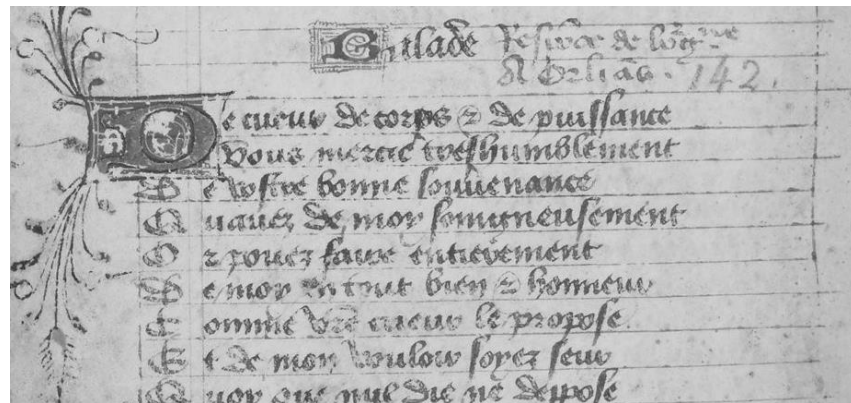 Balade Response de bourgne
A Orlians. 142.
De cueur de corps & de puissance
Vous mercie treshumblement
De vostre bonne souvenance
Quavez de moy soingneusement
Or povez faire entierement
De moy en tout bien & honneur
Comme vre cueur le propose
Et de mon vouloir soyez seur
Quoy que nul die ne deppose